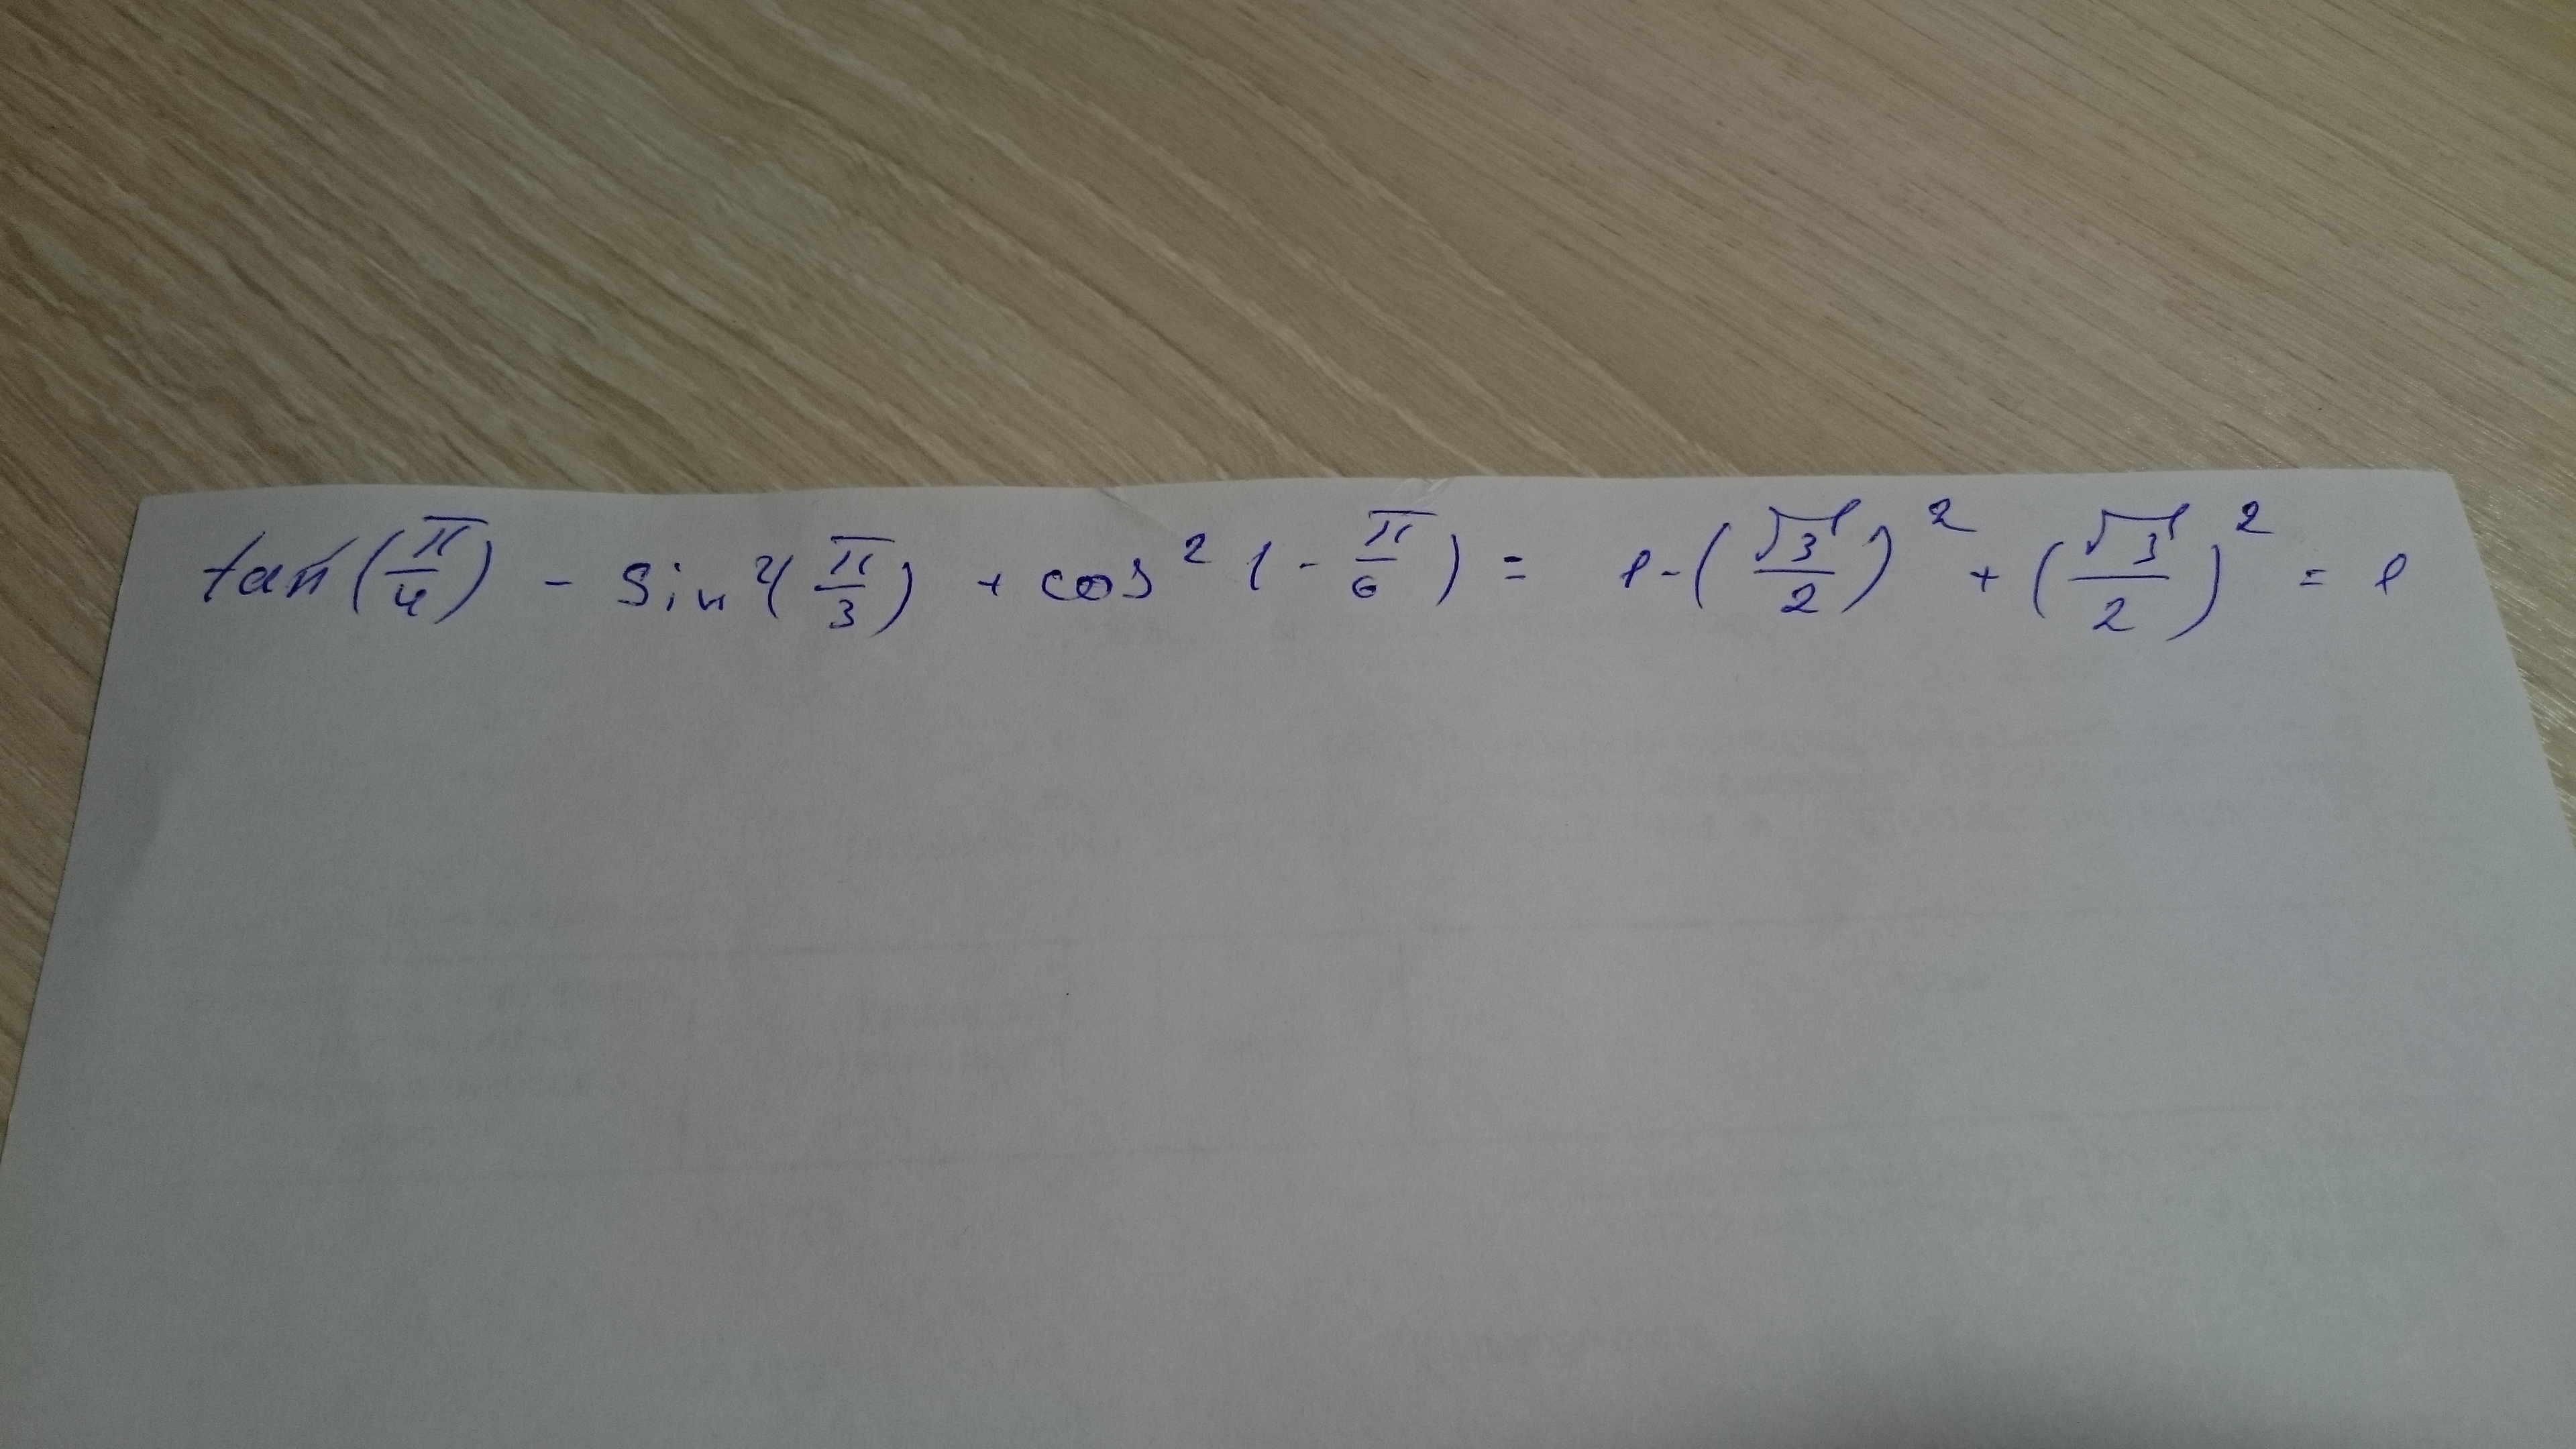 tan(π/4) - sin²(π/3) + cos²(-π/6) = 1-(√3/2)² + (√3/2)² = 1